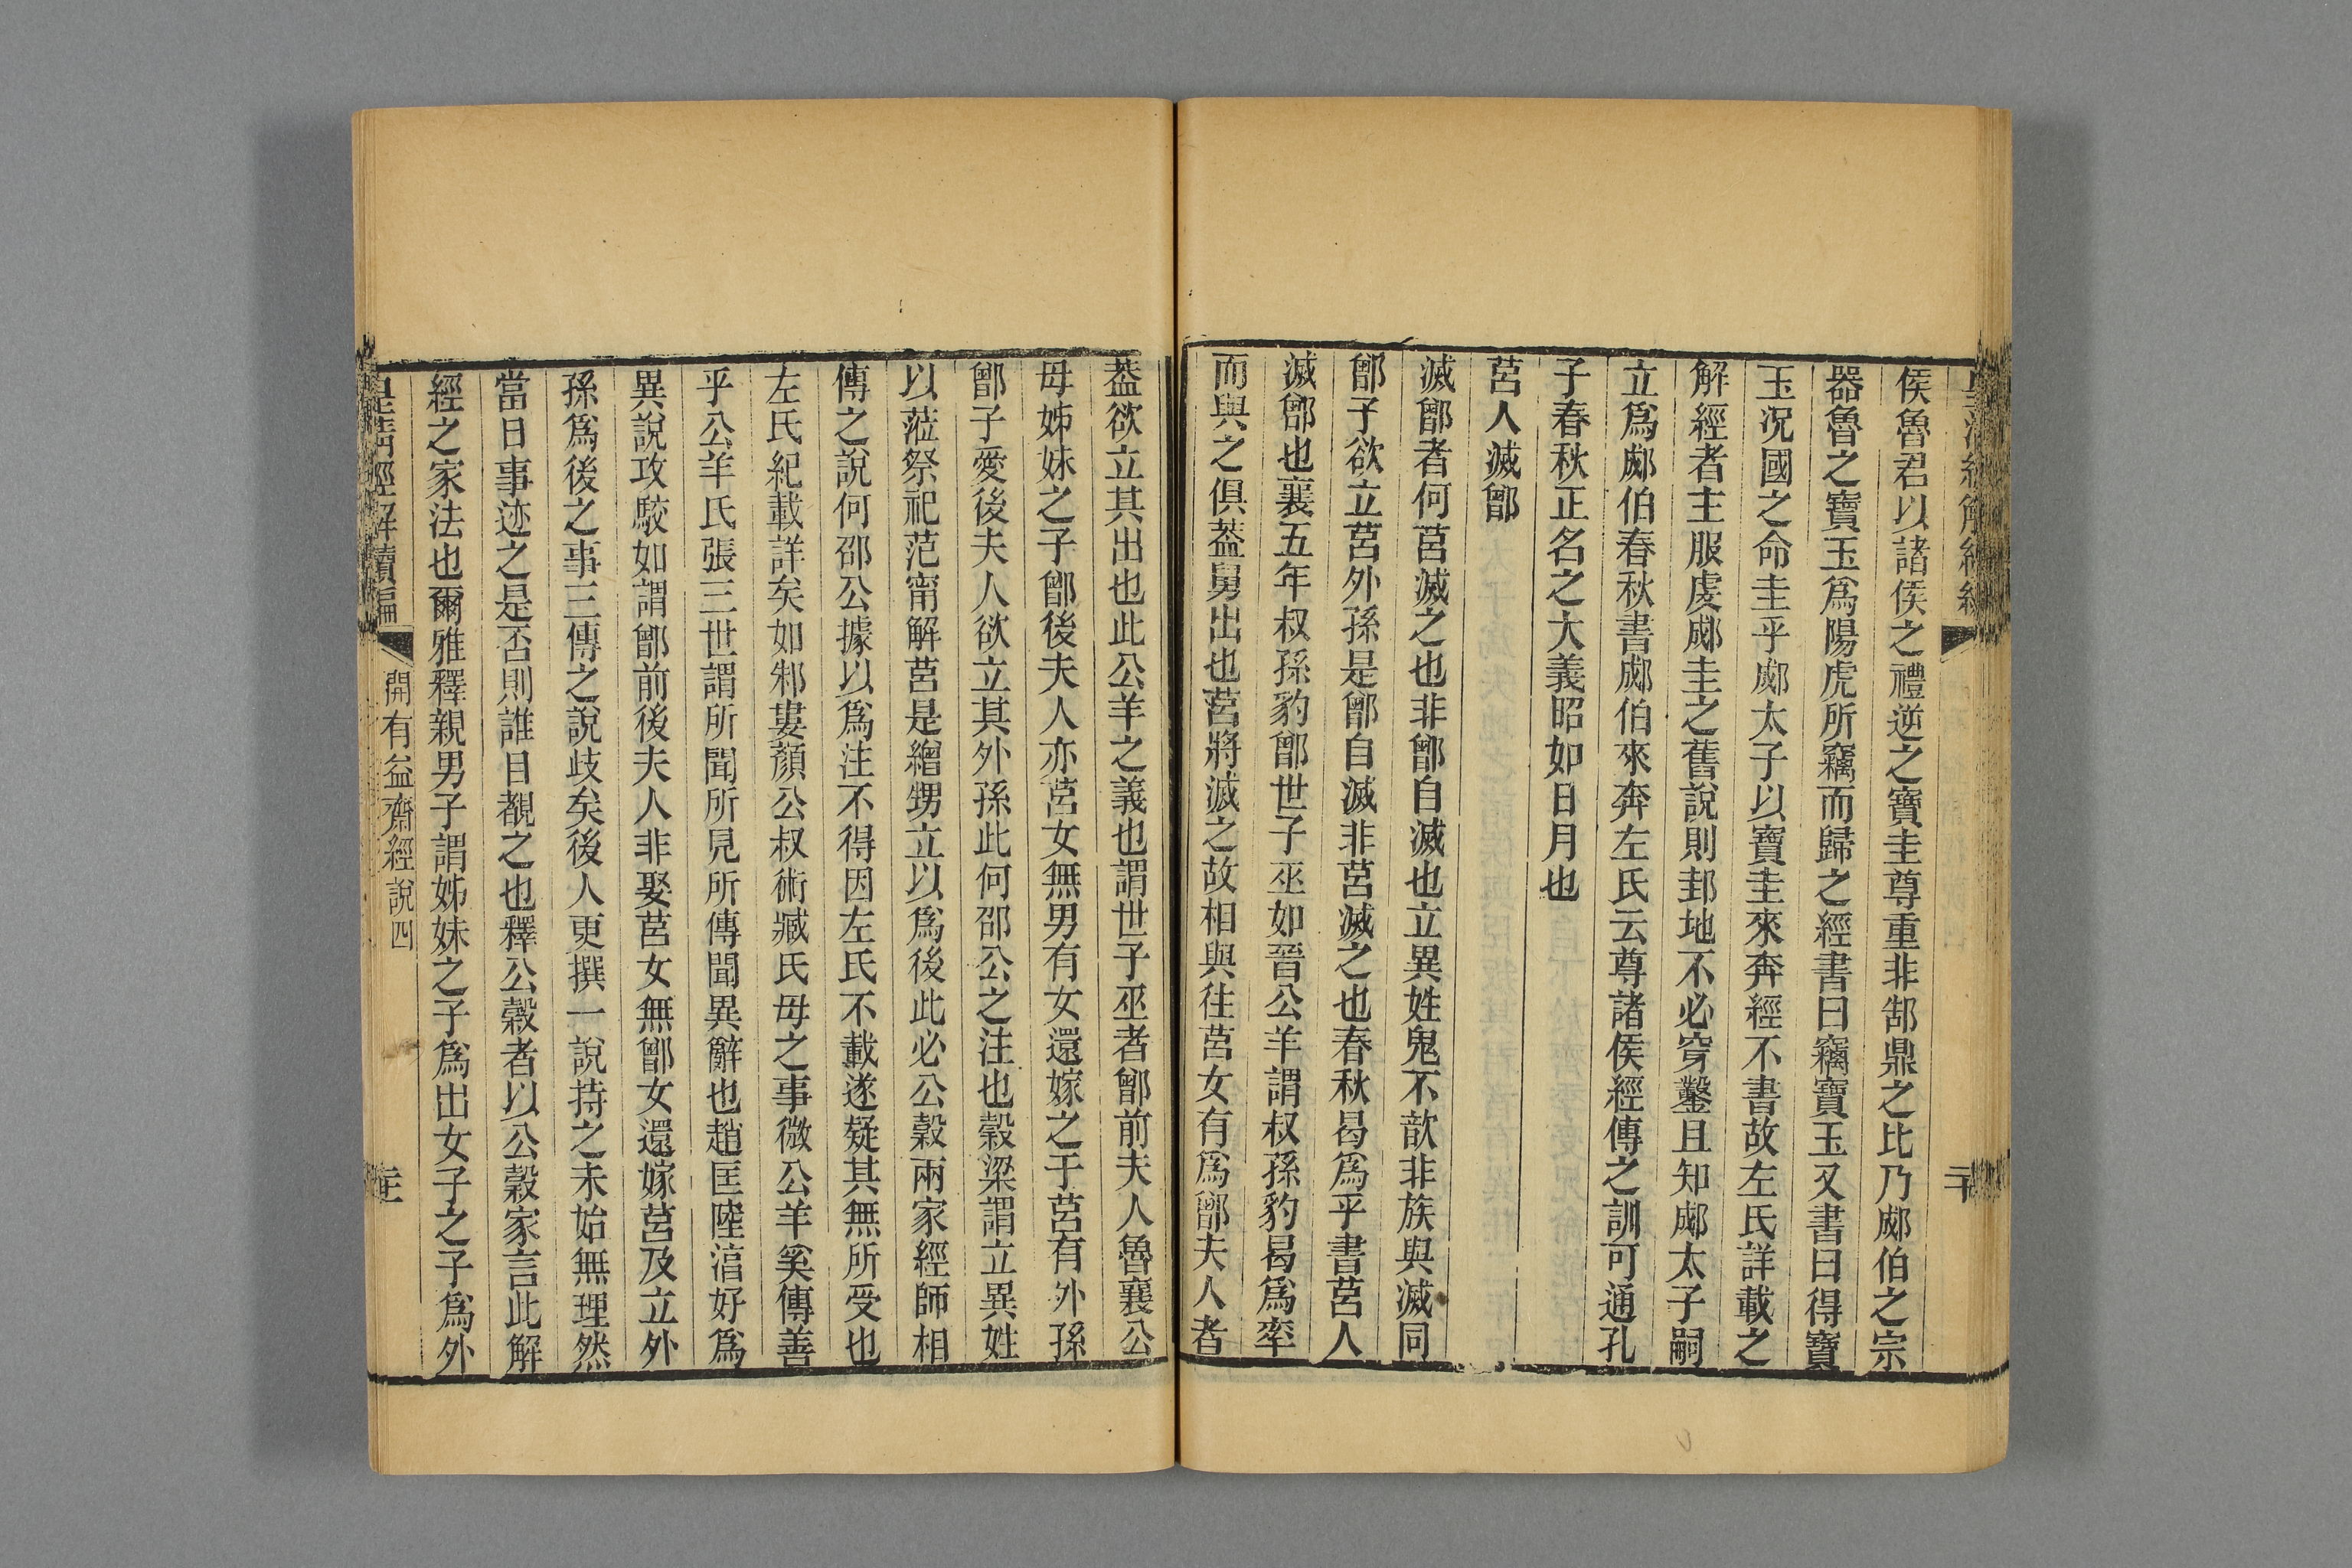 侯魯君以諸侯之禮逆之寶圭尊重非郜鼎之比乃郕伯之宗
器魯之寶玉爲陽虎所竊而歸之經書曰竊寶玉又書曰得寶
玉況國之命圭乎郕太子以寶圭來奔經不書故左氏詳載之
解經者主服虔郕圭之舊說則邽地不必穿鑿且知郕太子嗣
立爲郕伯春秋書郕伯來奔左氏云尊諸侯經傳之訓可通孔
子春秋正名之大義昭如日月也
莒人滅鄫
滅鄫者何莒滅之也非鄫自滅也立異姓鬼不歆非族與滅同
鄫子欲立莒外孫是鄫自滅非莒滅之也春秋曷爲乎書莒人
滅鄫也襄五年叔孫豹鄫世子巫如晉公羊謂叔孫豹曷爲率
而與之俱葢舅出也莒將滅之故相與往莒女有爲鄫夫人者
葢欲立其出也此公羊之義也謂世子巫者鄫前夫人魯襄公
母姊妹之子鄫後夫人亦莒女無男有女還嫁之于莒有外孫
鄫子愛後夫人欲立其外孫此何邵公之注也穀梁謂立異姓
以蒞祭祀范甯解莒是繒甥立以爲後此必公穀兩家經師相
傳之說何邵公據以爲注不得因左氏不載遂疑其無所受也
左氏紀載詳矣如邾婁顏公叔術臧氏母之事微公羊奚傳善
乎公羊氏張三世謂所聞所見所傳聞異辭也趙匡陸淳好爲
異說攻駁如謂鄫前後夫人非娶莒女無鄫女還嫁莒及立外
孫爲後之事三傳之說歧矣後人更撰一說持之未始無理然
當日事迹之是否則誰目覩之也釋公穀者以公穀家言此解
經之家法也爾雅釋親男子謂姊妹之子爲出女子之子爲外
皇淸經解續編
開有益齋經說四